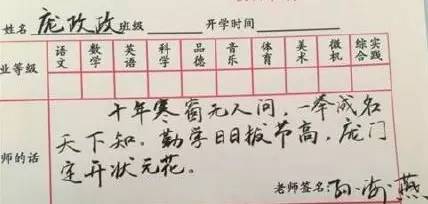 姓名 庞玫政 班级 开学时间
业等级 语文 数学 英语 科学 品德 音乐 体育 美术 微机 综合实践
师的话
十年寒窗无人问,一举成名
天下知。勤学日日拔节高,庞门
定开状元花。
老师签名:孙海燕